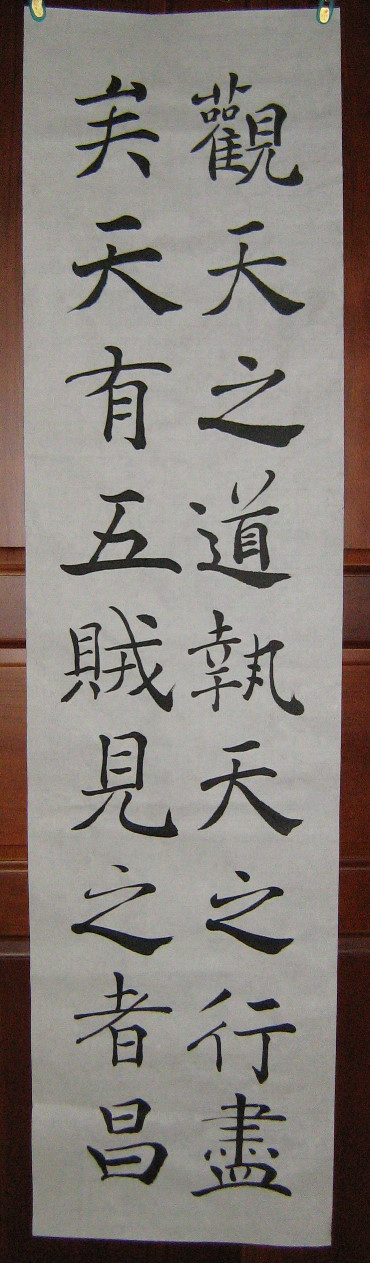 觀天之道執天之行盡
矣天有五賊見之者昌